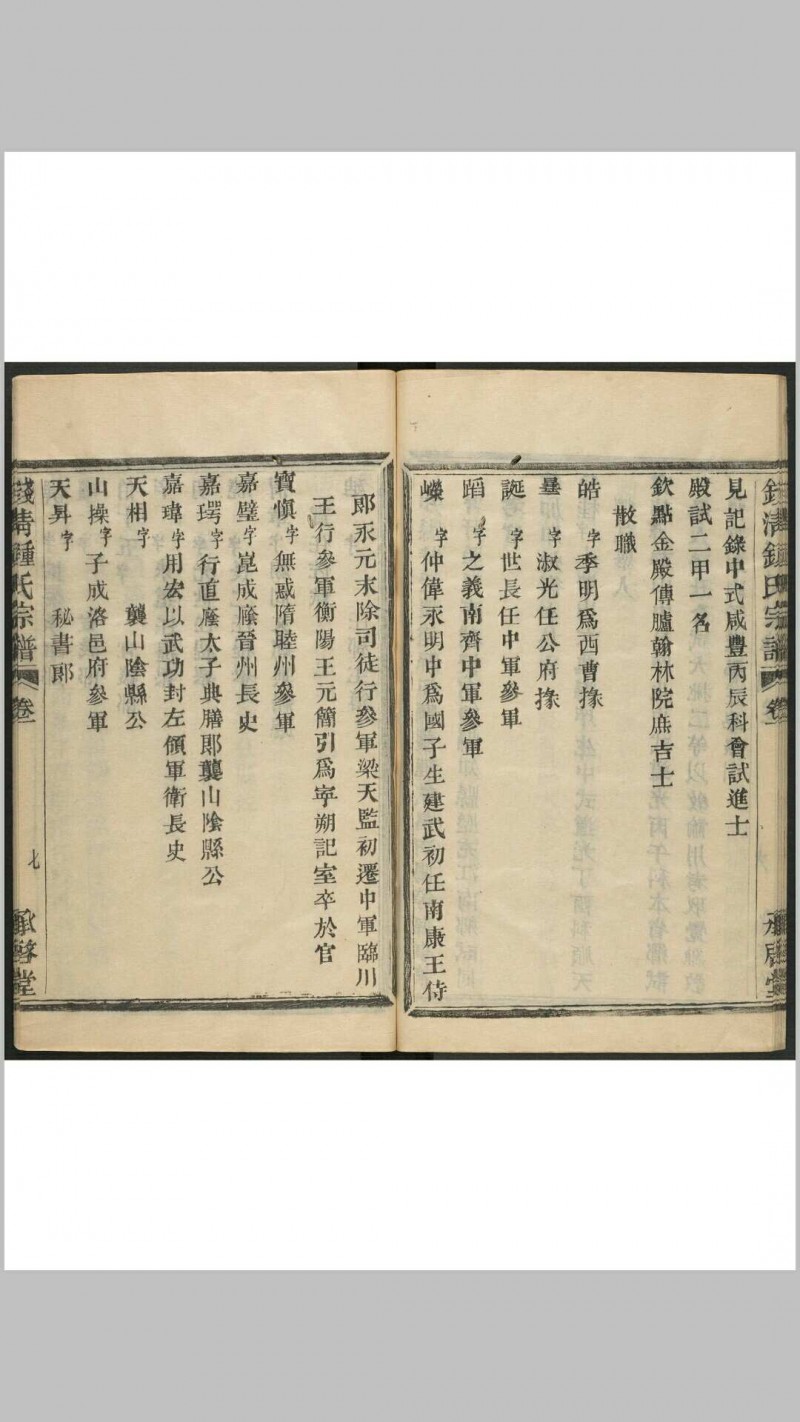 見記錄中式咸豐丙辰科會試進士
殿試二甲一名
欽點金殿傳臚翰林院庶吉士
散職
皓字季明爲西曹掾
㬅字淑光任公府掾
誕字世長任中軍參軍
蹈字之義南齊中軍參軍
嶸字仲偉永明中爲國子生建武初任南康王侍
郎永元末除司徒行參軍梁天監初遷中軍臨川
王行參軍衡陽王元簡引爲寧朔記室卒於官
寶愼字無惑隋睦州參軍
嘉璧字崑成廕晉州長史
嘉諤字行直廕太子典膳郎襲山陰縣公
嘉瑋字用宏以武功封左領軍衛長史
天相字 襲山陰縣公
山操字子成洛邑府參軍
天昇字 祕書郎
錢清鍾氏宗譜 卷一 七 承啓堂